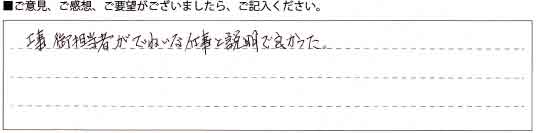 ■ご意見、ご感想、ご要望がございましたら、ご記入ください。
工事担当者がていねいな仕事と説明で良かった。